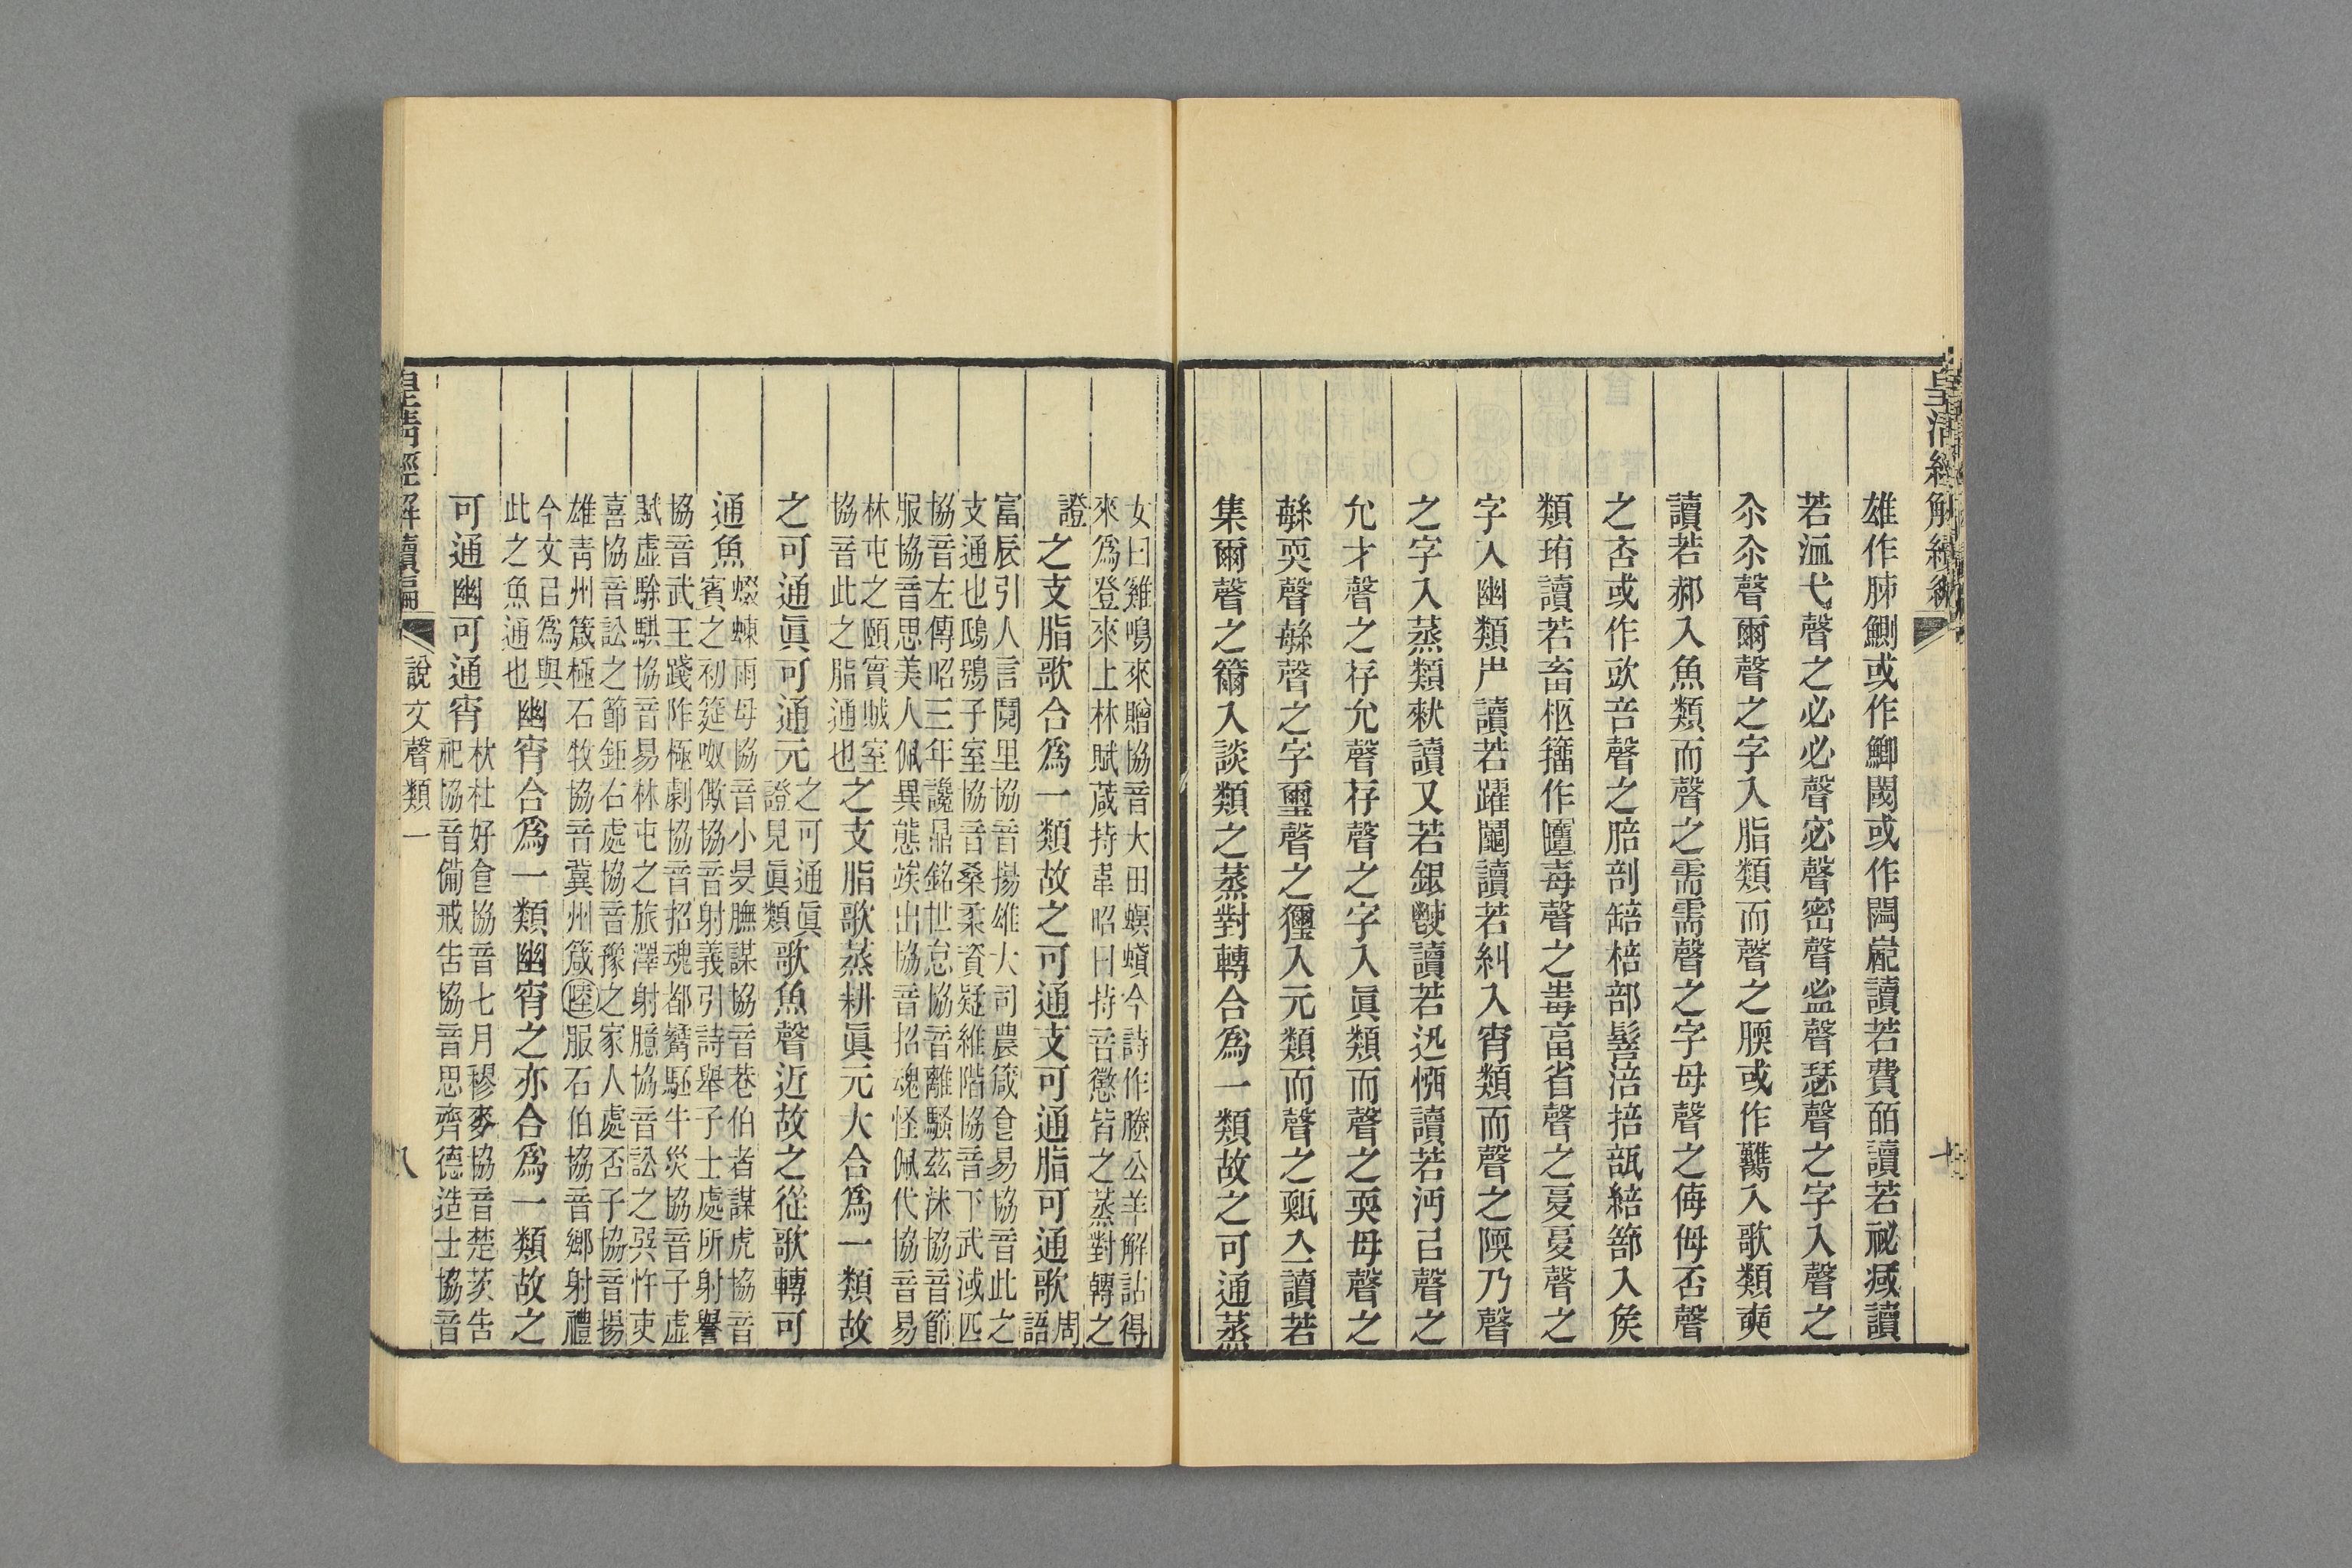 皇清經解續編
七
雄作胇鰂或作鯽閾或作閪嶏讀若費皕讀若祕㵄讀
若溫弋聲之必必聲宓聲密聲監聲瑟聲之字入聲之
尒尒聲爾聲之字入脂類而聲之腝或作䰭入歌類耎
讀若郝入魚類而聲之需需聲之字母聲之侮侮否聲
之否或作㰴咅聲之䏽剖䍌棓部髻涪掊瓿綹篰入矦
類珛讀若畜柩籒作匶毒聲之𡴘畗省聲之憂憂聲之
字入幽類屵讀若躍鬮讀若糾入宵類而聲之陾乃聲
之字入蒸類猌讀又若銀㪟讀若迅恦讀若沔㠯聲之
允才聲之存允聲存聲之字入眞類而聲之耎母聲之
緐耎聲緐聲之字璽聲之獮入元類而聲之甄亼讀若
集爾聲之籋入談類之蒸對轉合爲一類故之可通蒸
女曰雞鳴來贈協音大田螟螣今詩作螣公羊解詁得
來爲登來上林賦葴持韋昭曰持音懲皆之蒸對轉之
證之支脂歌合爲一類故之可通支可通脂可通歌周語
富辰引人言鬩里協音揚雄大司農箴食易協音此之
支通也鴟鴞子室協音桑柔資疑維階協音下武淢匹
協音左傳昭三年讒鼎銘世怠協音離騷茲沬協音節
服協音思美人佩異態竢出協音招魂怪佩代協音易
林屯之頤實賊室
協音此之脂通也之支脂歌蒸耕眞元大合爲一類故
之可通眞可通元之可通眞證見眞類歌魚聲近故之從歌轉可
通魚蝃蝀雨母協音小旻膴謀協音巷伯者謀虎協音
賓之初筵呶僛協音射義引詩舉子士處所射譽
協音武王踐阼極劇協音招魂都觺駓牛災協音子虛
賦虛騄騏協音易林屯之旅澤射臆協音訟之巽忤吏
喜協音訟之節鉅右處協音豫之家人處否子協音揚
雄靑州箴極石牧協音冀州箴陸服石伯協音鄉射禮
今文㠯爲與
此之魚通也幽宵合爲一類幽宵之亦合爲一類故之
可通幽可通宵杕杜好食協音七月穋麥協音楚茨告
祀協音備戒告協音思齊德造士協音
皇淸經解續編
說文聲類一
八